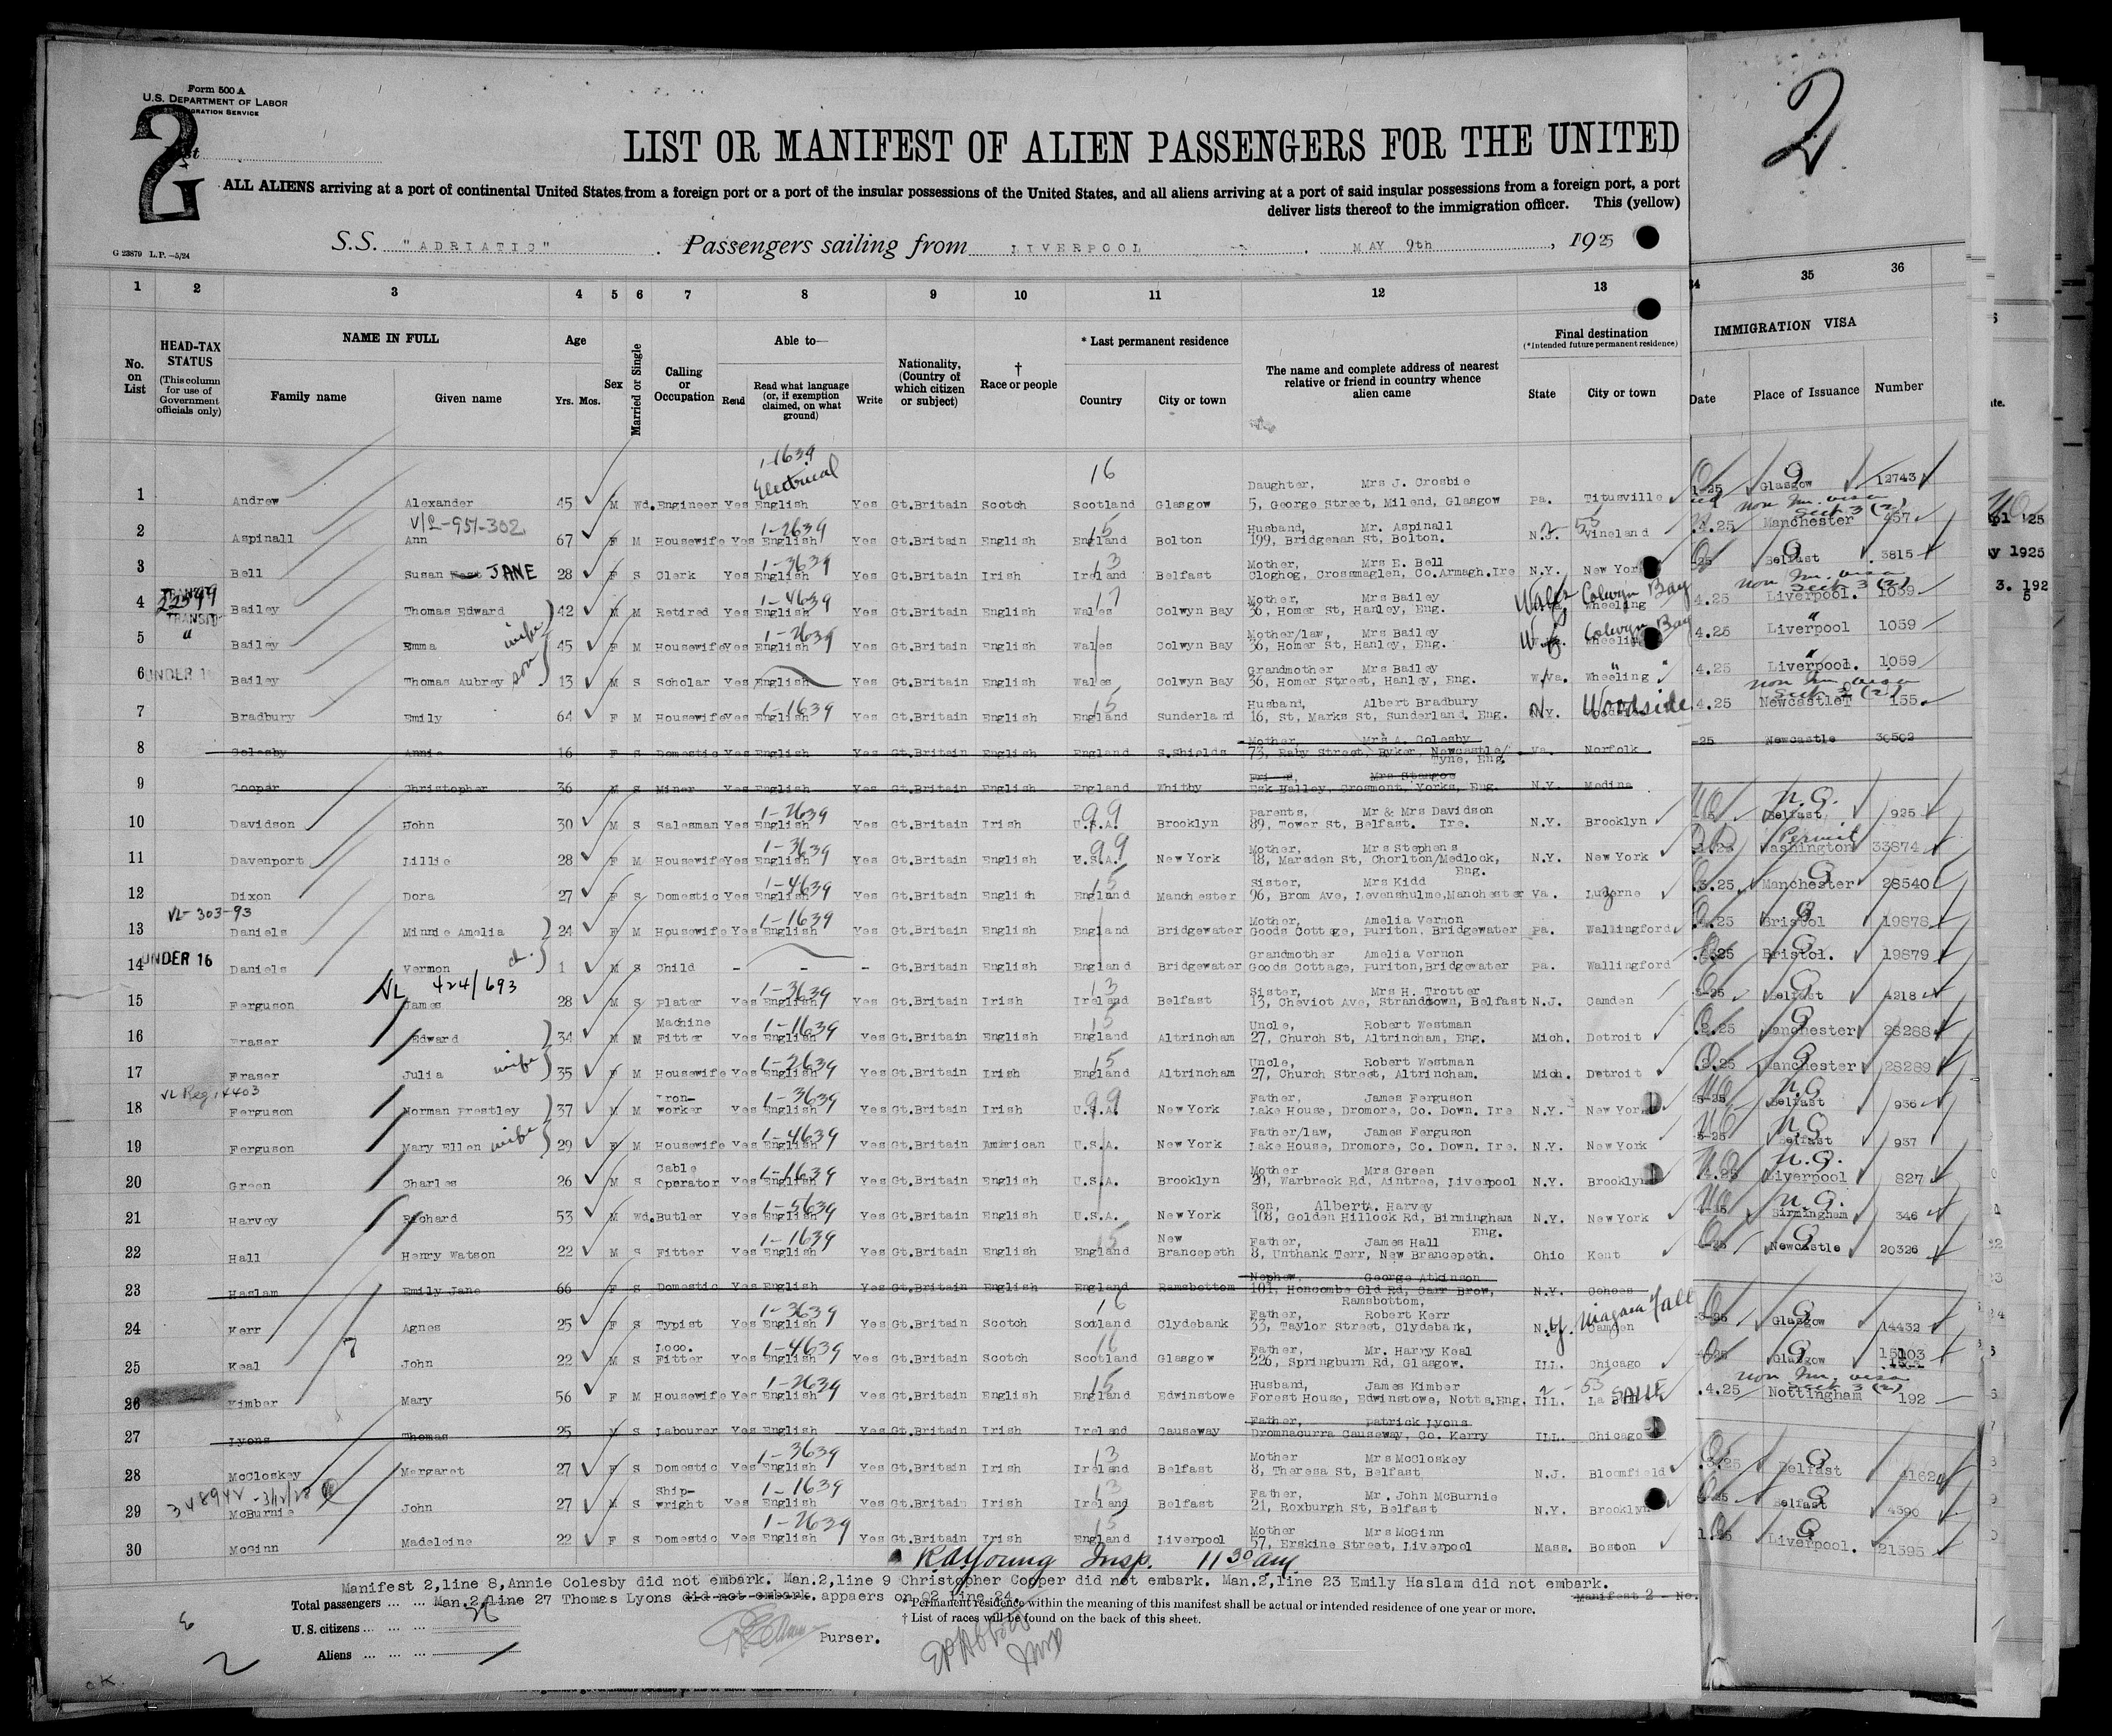 Form 500 A
U.S. DEPARTMENT OF LABOR
IMMIGRATION SERVICE
2
2
LIST OR MANIFEST OF ALIEN PASSENGERS FOR THE UNITED
ALL ALIENS arriving at a port of continental United States from a foreign port or a port of the insular possessions of the United States, and all aliens arriving at a port of said insular possessions from a foreign port, a port
deliver lists thereof to the immigration officer. This (yellow)
S.S. "ADRIATIC" . Passengers sailing from LIVERPOOL . MAY 9th , 1925
G 23879 L.P.—5/24
1 2 3 4 5 6 7 8 9 10 11 12 13 34 35 36
No. on List
HEAD-TAX STATUS (This column for use of Government officials only)
NAME IN FULL
Family name Given name
Age
Yrs. Mos.
Sex
Married or Single
Calling or Occupation
Able to—
Read Read what language (or, if exemption claimed, on what ground) Write
Nationality, (Country of which citizen or subject)
† Race or people
* Last permanent residence
Country City or town
The name and complete address of nearest relative or friend in country whence alien came
Final destination
(*Intended future permanent residence)
State City or town
IMMIGRATION VISA
Date Place of Issuance Number
1-1639
Electrical 16
Daughter, Mrs J. Crosbie
1 Andrew Alexander 45 M Wd. Engineer Yes English Yes Gt.Britain Scotch Scotland Glasgow 5, George Street, Milend, Glasgow Pa. Titusville 1-25 Glasgow 12743
V/L-951-302 1-2639 15 Husband, Mr. Aspinall 2 - 53 non Im. visa Sect 3 (2)
2 Aspinall Ann 67 F M Housewife Yes English Yes Gt.Britain English England Bolton 199, Bridgeman St, Bolton. N.J. Vineland 4.25 Manchester 457
1-3639 13 Mother, Mrs E. Bell
3 Bell Susan JANE 28 F S Clerk Yes English Yes Gt.Britain Irish Ireland Belfast Cloghog, Crossmaglen, Co.Armagh.Ire N.Y. New York 25 Belfast 3815
TRANSIT 1-4639 17 Mother, Mrs Bailey Wales Colwyn Bay non Im. visa Sect 3 (2)
4 Bailey Thomas Edward 42 M M Retired Yes English Yes Gt.Britain English Wales Colwyn Bay 36, Homer St, Hanley, Eng. Wheeling 4.25 Liverpool. 1059
TRANSIT
" wife 1-2639 Mother/law, Mrs Bailey Colwyn Bay "
5 Bailey Emma 45 F M Housewife Yes English Yes Gt.Britain English Wales Colwyn Bay 36, Homer St, Hanley, Eng. Wheeling 4.25 Liverpool 1059
UNDER 16 son Grandmother Mrs Bailey "
6 Bailey Thomas Aubrey 13 M S Scholar Yes English Yes Gt.Britain English Wales Colwyn Bay 36, Homer Street, Hanley, Eng. W.Va. Wheeling 4.25 Liverpool. 1059
1-1639 15 Husband, Albert Bradbury Woodside non Im visa Sect 3 (2)
7 Bradbury Emily 64 F M Housewife Yes English Yes Gt.Britain English England Sunderland 16, St, Marks St, Sunderland, Eng. N.Y. 4.25 Newcastle 155.
Mother, Mrs A. Colesby
8 Colesby Annie 16 F S Domestic Yes English Yes Gt.Britain English England S.Shields 73, Raby Street, Byker, Newcastle/ Tyne, Eng. Va. Norfolk -25 Newcastle 30502
Mrs Stangoe
9 Cooper Christopher 36 M S Miner Yes English Yes Gt.Britain English England Whitby Esk Halley, Grosmont, Yorks, Eng. N.Y. Medina
1-2639 99 Parents, Mr & Mrs Davidson N.Q.
10 Davidson John 30 M S Salesman Yes English Yes Gt.Britain Irish U.S.A. Brooklyn 89, Tower St, Belfast. Ire. N.Y. Brooklyn Belfast 925
1-3639 99 Mother, Mrs Stephens Permit
11 Davenport Lillie 28 F M Housewife Yes English Yes Gt.Britain English U.S.A. New York 18, Marsden St, Chorlton/Medlock, Eng. N.Y. New York Washington 33874
1-4639 15 Sister, Mrs Kidd
12 Dixon Dora 27 F S Domestic Yes English Yes Gt.Britain English England Manchester 96, Brom Ave, Levenshulme,Manchester Va. Luzerne 3.25. Manchester 28540
VL-303-93 1-1639 Mother, Amelia Vernon
13 Daniels Minnie Amelia 24 F M Housewife Yes English Yes Gt.Britain English England Bridgewater Goods Cottage, Puriton, Bridgewater Pa. Wallingford .25 Bristol 19878
UNDER 16 ch. Grandmother Amelia Vernon
14 Daniels Vernon 1 M S Child - - - Gt.Britain English England Bridgewater Goods Cottage, Puriton,Bridgewater Pa. Wallingford .25 Bristol. 19879
VL 424/693 1-3639 13 Sister, Mrs H. Trotter
15 Ferguson James 28 M S Plater Yes English Yes Gt.Britain Irish Ireland Belfast 13, Cheviot Ave, Strandtown, Belfast N.J. Camden -25 Belfast 4218
Machine 1-1639 15 Uncle, Robert Westman
16 Fraser Edward 34 M M Fitter Yes English Yes Gt.Britain English England Altrincham 27, Church St, Altrincham, Eng. Mich. Detroit .2.25 Manchester 28288
wife 1-2639 15 Uncle, Robert Westman
17 Fraser Julia 35 F M Housewife Yes English Yes Gt.Britain Irish England Altrincham 27, Church Street, Altrincham. Mich. Detroit .2.25 Manchester 28289
VL Reg. 14403 Iron- 1-3639 99 Father, James Ferguson N.Q
18 Ferguson Norman Prestley 37 M M worker Yes English Yes Gt.Britain Irish U.S.A. New York Lake House, Dromore, Co. Down. Ire N.Y. New York 5-25 Belfast 936
wife 1-4639 Father/law, James Ferguson N.Q
19 Ferguson Mary Ellen 29 F M Housewife Yes English Yes Gt.Britain American U.S.A. New York Lake House, Dromore, Co. Down. Ire. N.Y. New York 5-25 Belfast 937
Cable 1-1639 Mother Mrs Green N.Q.
20 Green Charles 26 M S Operator Yes English Yes Gt.Britain English U.S.A. Brooklyn 20, Warbreck Rd, Aintree, Liverpool N.Y. Brooklyn .4.25 Liverpool 827
1-5639 Son, Albert A. Harvey N.Q.
21 Harvey Richard 53 M Wd. Butler Yes English Yes Gt.Britain English U.S.A. New York 108, Golden Hillock Rd, Birmingham Eng. N.Y. New York Birmingham 346
1-1639 15 New Father, James Hall
22 Hall Henry Watson 22 M S Fitter Yes English Yes Gt.Britain English England Brancepeth 8, Unthank Terr, New Brancepeth. Ohio Kent -25 Newcastle 20326
Nephew, George Atkinson
23 Haslam Emily Jane 66 F S Domestic Yes English Yes Gt.Britain English England Ramsbottom 101, Honcombe Old Rd, Carr Brow, Ramsbottom, N.Y. Cohoes
1-3639 16 Father, Robert Kerr Niagara Fall
24 Kerr Agnes 25 F S Typist Yes English Yes Gt.Britain Scotch Scotland Clydebank 33, Taylor Street, Clydebank, N.Y. Camden -25 Glasgow 14432
7 Loco. 1-4639 16 Father, Mr. Harry Keal
25 Keal John 22 M S Fitter Yes English Yes Gt.Britain Scotch Scotland Glasgow 226, Springburn Rd, Glasgow. ILL. Chicago Glasgow 15103
1-2639 15 Husband, James Kimber 2 - 53 non Im. visa Sect 3 (2)
26 Kimber Mary 56 F M Housewife Yes English Yes Gt.Britain English England Edwinstowe Forest House, Edwinstowe, Notts.Eng. ILL. La SALLE .4.25 Nottingham 192
Father, Patrick Lyons
27 Lyons Thomas 25 M S Labourer Yes English Yes Gt.Britain Irish Ireland Causeway Dromnacurra Causeway, Co. Kerry ILL. Chicago
1-3639 13 Mother Mrs McCloskey
28 McCloskey Margaret 27 F S Domestic Yes English Yes Gt.Britain Irish Ireland Belfast 8, Theresa St, Belfast N.J. Bloomfield .25 Belfast 4162
348942 -3/12/28 Ship- 1-1639 13 Father, Mr. John McBurnie
29 McBurnie John 27 M S wright Yes English Yes Gt.Britain Irish Ireland Belfast 21, Roxburgh St, Belfast N.Y. Brooklyn .25 Belfast 4390
1-2639 15 Mother Mrs McGinn
30 McGinn Madeleine 22 F S Domestic Yes English Yes Gt.Britain Irish England Liverpool 57, Erskine Street, Liverpool Mass. Boston Liverpool. 21395
R.A. Young Insp. 11 30 am.
Manifest 2,line 8,Annie Colesby did not embark. Man.2,line 9 Christopher Cooper did not embark. Man.2,line 23 Emily Haslam did not embark.
Man.2,line 27 Thomas Lyons did not embark. appaers on 02 line 24. Manifest 2 - No.
Total passengers ... ... 26
* Permanent residence within the meaning of this manifest shall be actual or intended residence of one year or more.
U.S. citizens ... ... ...
† List of races will be found on the back of this sheet.
Purser.
Aliens ... ... ...
2
O.K.